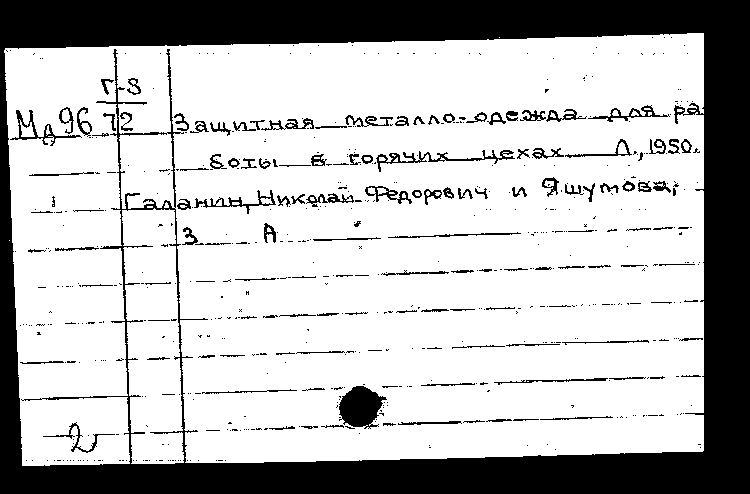 Г-8
Мд96 72 Защитная металло-одежда для ра-
боты в горячих цехах Л., 1950.
Галанин, Николай Федорович и Яшумова,
З А
2